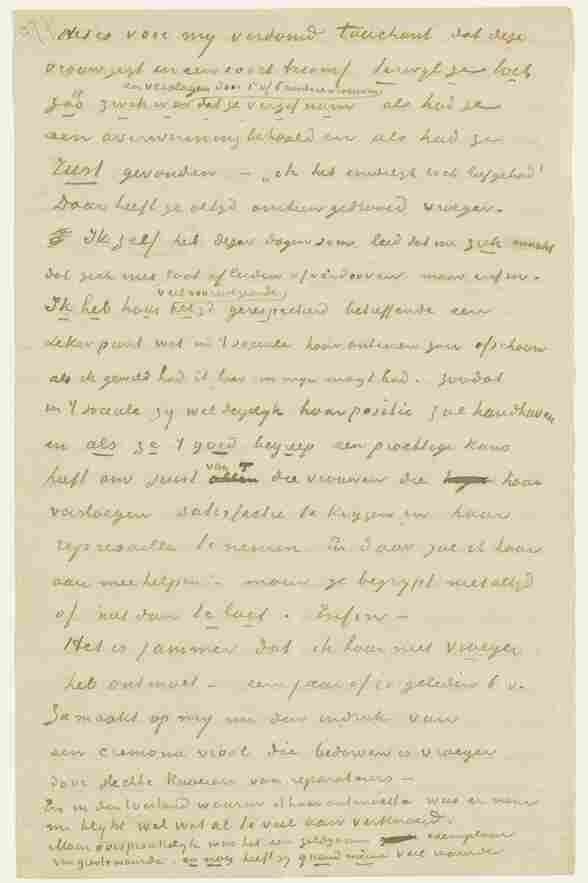 Het is voor my verdomd touchant dat deze
vrouw zegt en een soort triomf terwyl ze toch
en verslagen door 5 of 6 andere vrouwen
zóó zwak was dat ze vergif nam als had ze
een overwinning behaald en als had ze
rust gevonden — „ik heb eindelyk toch liefgehad"
Daar heeft ze altyd om heen gedraaid vroeger.
Ik zelf heb dezer dagen soms leed dat me ziek maakt
dat zich niet laat afleiden of verdooven maar enfin.
veel vooruitziende
Ik heb haar altyd gerespecteerd betreffende een
zeker punt wat in 't sociale haar onteeren zou ofschoon
als ik gewild had ik haar in myn magt had. zoodat
in 't sociale zy wel degelyk haar positie zal handhaven
en als ze 't goed begreep een prachtige kans
heeft om juist van die vrouwen die haar
versloegen satisfactie te krygen en haar
represaille te nemen En daar zal ik haar
aan mee helpen — maar ze begrypt niet altyd
of 't was dan te laat. Enfin —
Het is jammer dat ik haar niet vroeger
heb ontmoet — een jaar of 10 geleden b v.
Ze maakt op my nu den indruk van
een cremona viool die bedorven is vroeger
door slechte knoeiers van reparateurs —
En in den toestand waarin ik haar ontmoette was er naar
me blykt wel wat al te veel aan verknoeid.
Maar oorspronkelyk was het een zeldzaam exemplaar
van groote waarde. en nog heeft zy quand même veel waarde